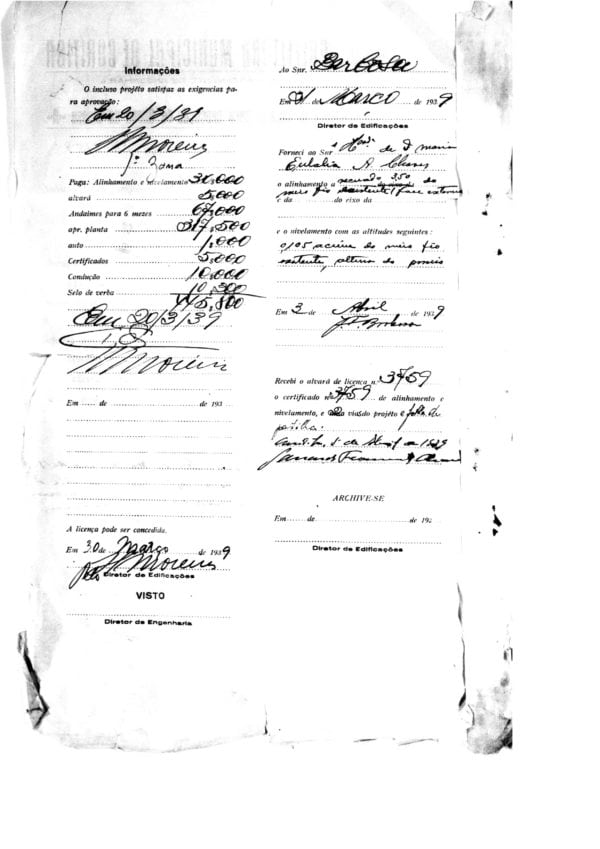 Informações
O incluso projéto satisfaz as exigencias pa-
ra aprovação:
Em 20/3/39
M Moreira
1ª Zona
Paga: Alinhamento e nivelamento 30,000
alvará 5,000
Andaimes para 6 mezes 67,000
apr. planta 317,500
auto 1,000
Certificados 5,000
Condução 10,000
Selo de verba 10,300
Em 20/3/39
M Moreira
Em de de 193
A licença pode ser concedida.
Em 30 de Março de 1939
M Moreira
Diretor de Edificações
VISTO
Diretor de Engenharia
Ao Snr. Barbosa
Em 31 de Março de 1939
Diretor de Edificações
Forneci ao Snr de d. Maria
Eulalia A. Chaves
o alinhamento a recuado 3,50 do
meio fio existente (face externa
e da do eixo da
e o nivelamento com as altitudes seguintes:
0,05 acima do meio fio
existente, altura do passeio
Em 3 de Abril de 1939
Barbosa
Recebi o alvará de licença n.º 3759
o certificado nº 3759 de alinhamento e
nivelamento, e vias do projéto e folha de
de 1939
ARCHIVE-SE
Em de de 192
Diretor de Edificações